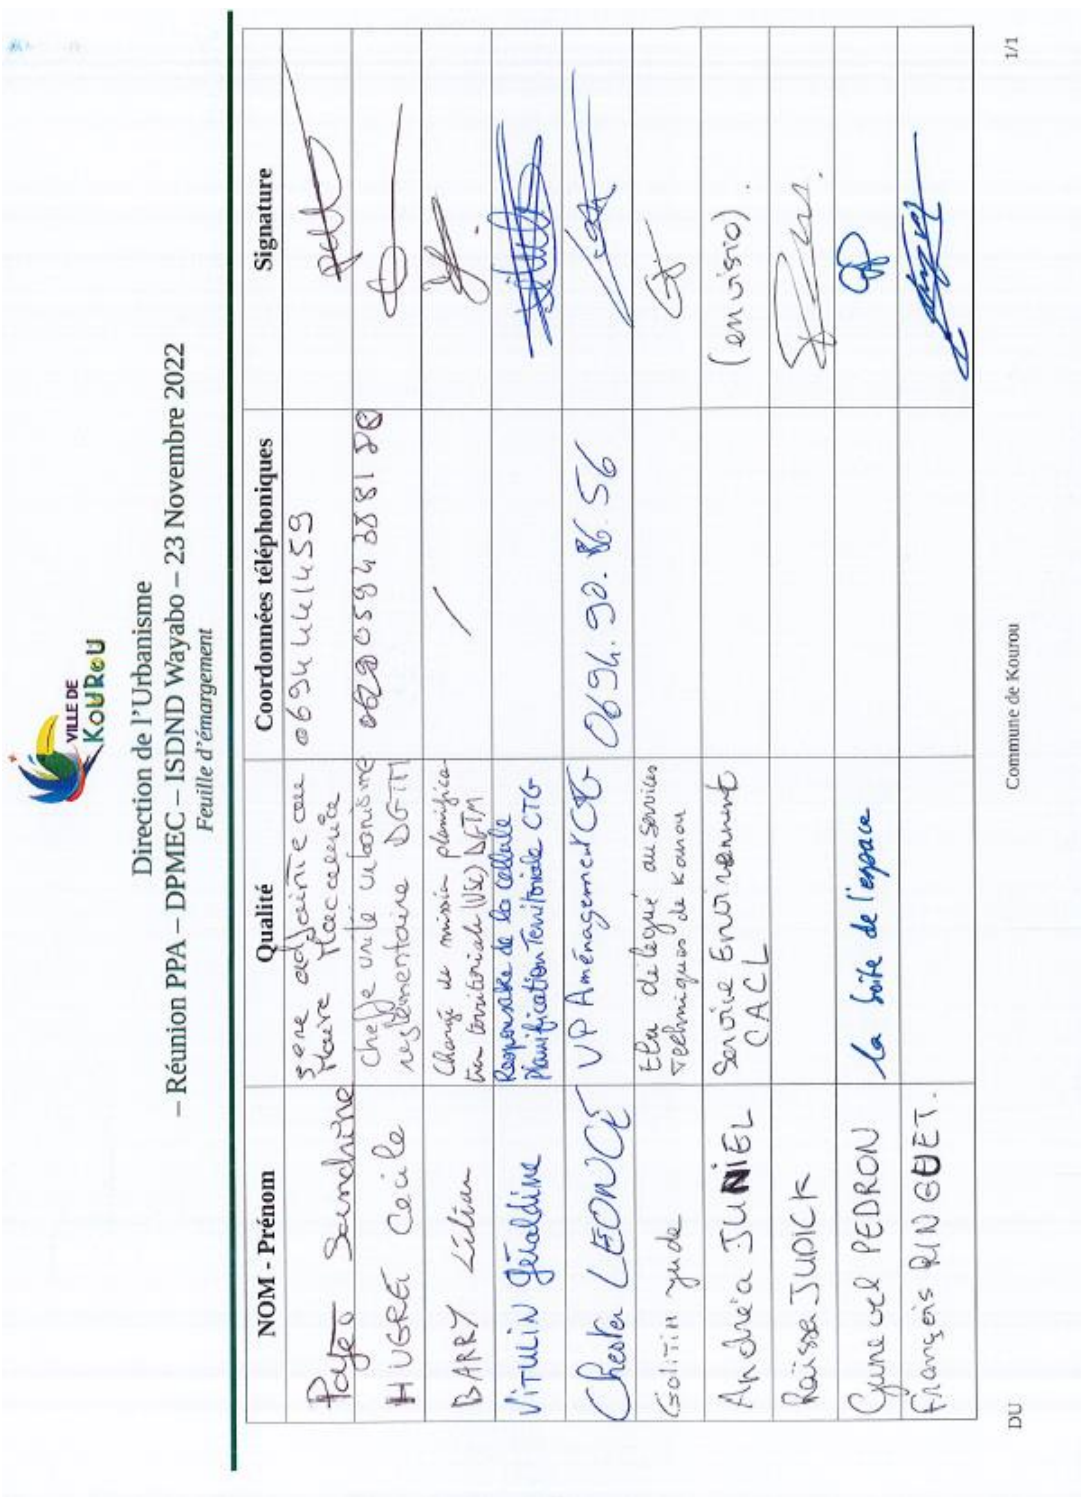 VILLE DE
KOUROU
Direction de l'Urbanisme
– Réunion PPA – DPMEC – ISDND Wayabo – 23 Novembre 2022
Feuille d'émargement
NOM - Prénom Qualité Coordonnées téléphoniques Signature
Sandrine adjointe au
Maire 0694441459
HUGRET Cécile Cheffe unité urbanisme
réglementaire DGTM
BARRY Lilian Chargé de mission planifica-
tion territoriale DGTM /
VITULIN Géraldine Responsable de la cellule
Planification Territoriale CTG
Chester LEONCE VP Aménagement 0694.90.86.56
Elu délégué au services
Techniques de
Andréa JUNIEL Service Environnement
CACL (en visio).
Raïssa JUDICK
PEDRON la boîte de l'espace
François RINGUET.
DU Commune de Kourou 1/1